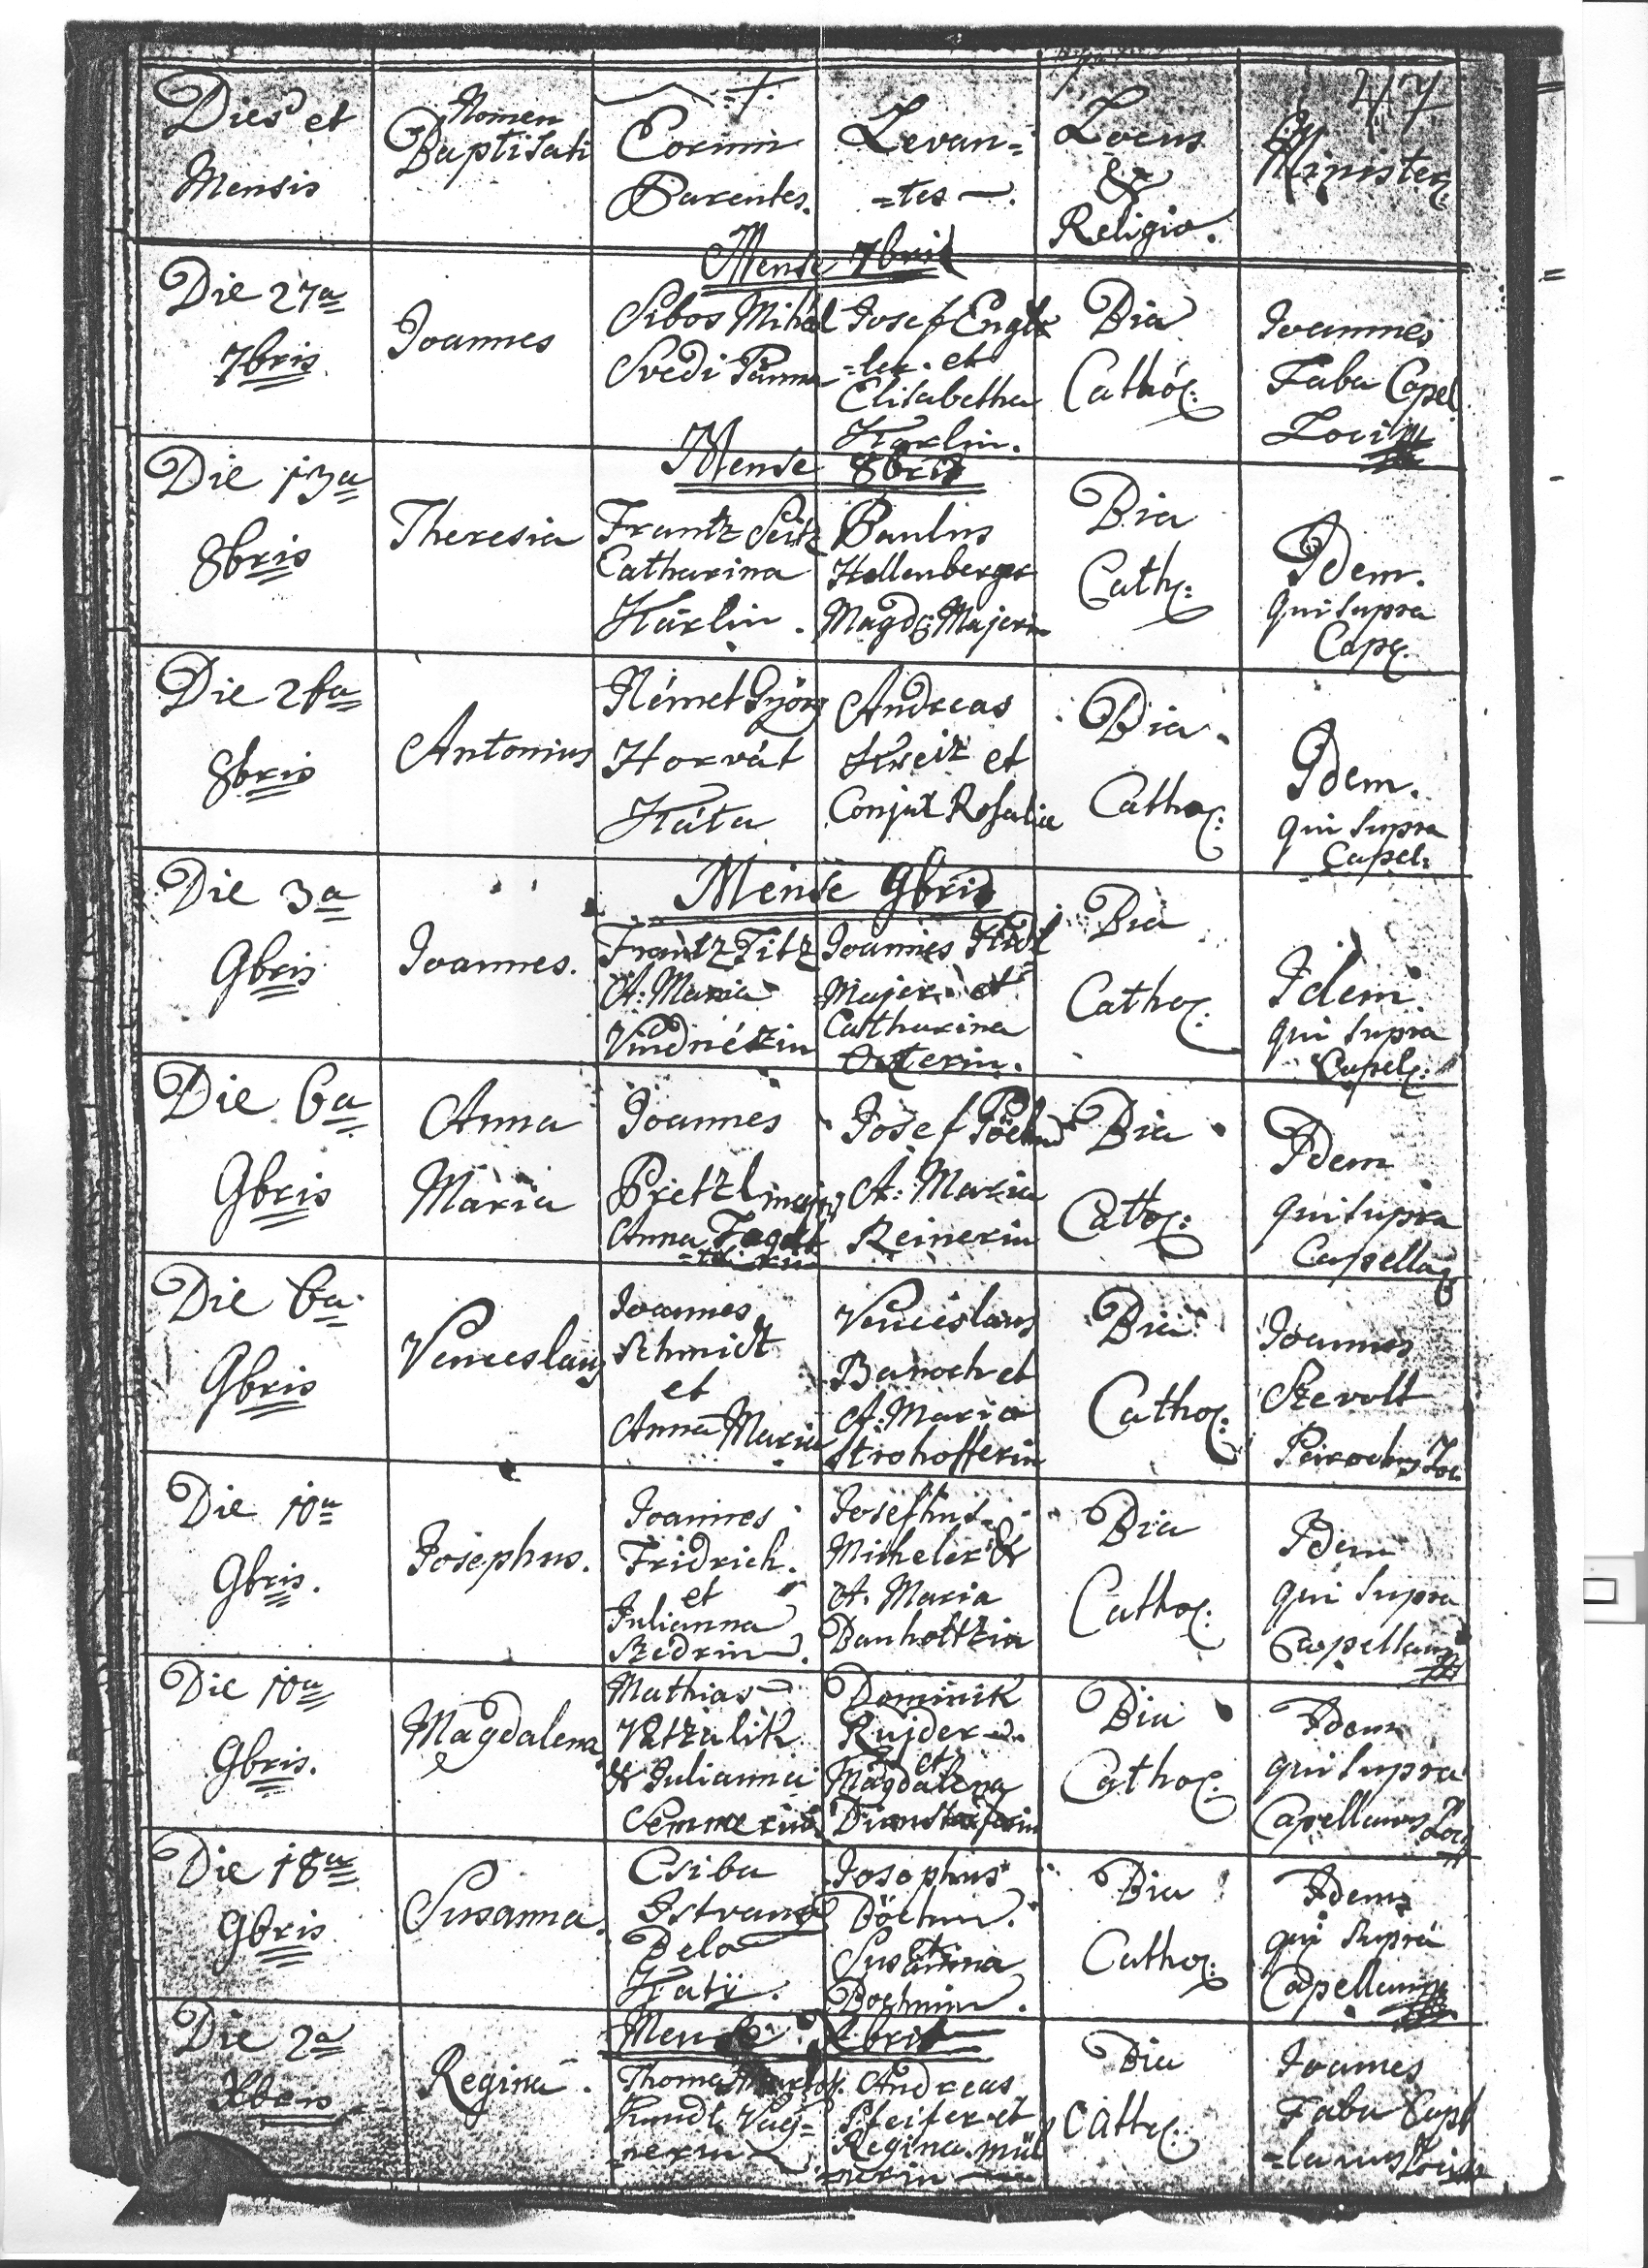 47
Dies et
Mensis
Nomen
Baptisati
Eorum
Parentes.
Levan=
=tes —.
Locus
&
Religio.
Minister
Mense 7bris
Die 27a
7bris
Joannes
Sibos Mihal
Svedi Panna
Josef Engle
=ler. et
Elisabetha
Karlin.
Bia
Cathol:
Joannes
Faba Capel
Loci
Mense 8bris
Die 13a
8bris
Theresia
Frantz Seitz
Catharina
Karlin.
Paulus
Hollenberger
Magd: Majerin
Bia
Cath:
Idem.
qui supra
Cap.
Die 26a
8bris
Antonius
Német Györg
Horvát
Káta
Andreas
et
Conjux Rosalia
Bia.
Cathol:
Idem.
qui supra
Capel:
Mense 9bris
Die 3a
9bris
Joannes.
Frantz Titz
A: Maria
Joannes
Majer et
Catharina
Bia
Cathol:
Idem
qui supra
Capel:
Die 6a
9bris
Anna
Maria
Joannes
Anna
Josef
A: Maria
Reinerin
Bia
Cathol:
Idem
qui supra
Capella
Die 6a
9bris
Venceslaus
Joannes
Schmidt
et
Anna Maria
Venceslaus
Banoch et
A: Maria
Strohofferin
Bia
Cathol:
Joannes
Szevolt
Parochus Loc
Die 10a
9bris.
Josephus.
Joannes
Fridrich.
et
Julianna
Szedrin.
Josephus
Micheler &
A. Maria
Danholtzin
Bia
Cathol:
Idem
qui supra
Capellanus
Die 10a
9bris.
Magdalena
Mathias
& Julianna
Dominik
Rujder
et
Magdalena
Bia
Cathol:
Idem
qui supra
Capellanus Loci
Die 18a
9bris
Susanna.
Csiba
Istvan
Bela
Katÿ.
Josephus
Böchm.
et
Susanna
Boehmin.
Bia
Cathol:
Idem
qui supra
Capellanus
Mense Xbris
Die 2a
Xbris
Regina.
Thomas
Kundl Vag=
=nerin
Andreas
Pfeifer et
Regina Mül
=nerin
Bia
Cathol:
Joannes
Faba Capl
=lanus Loci